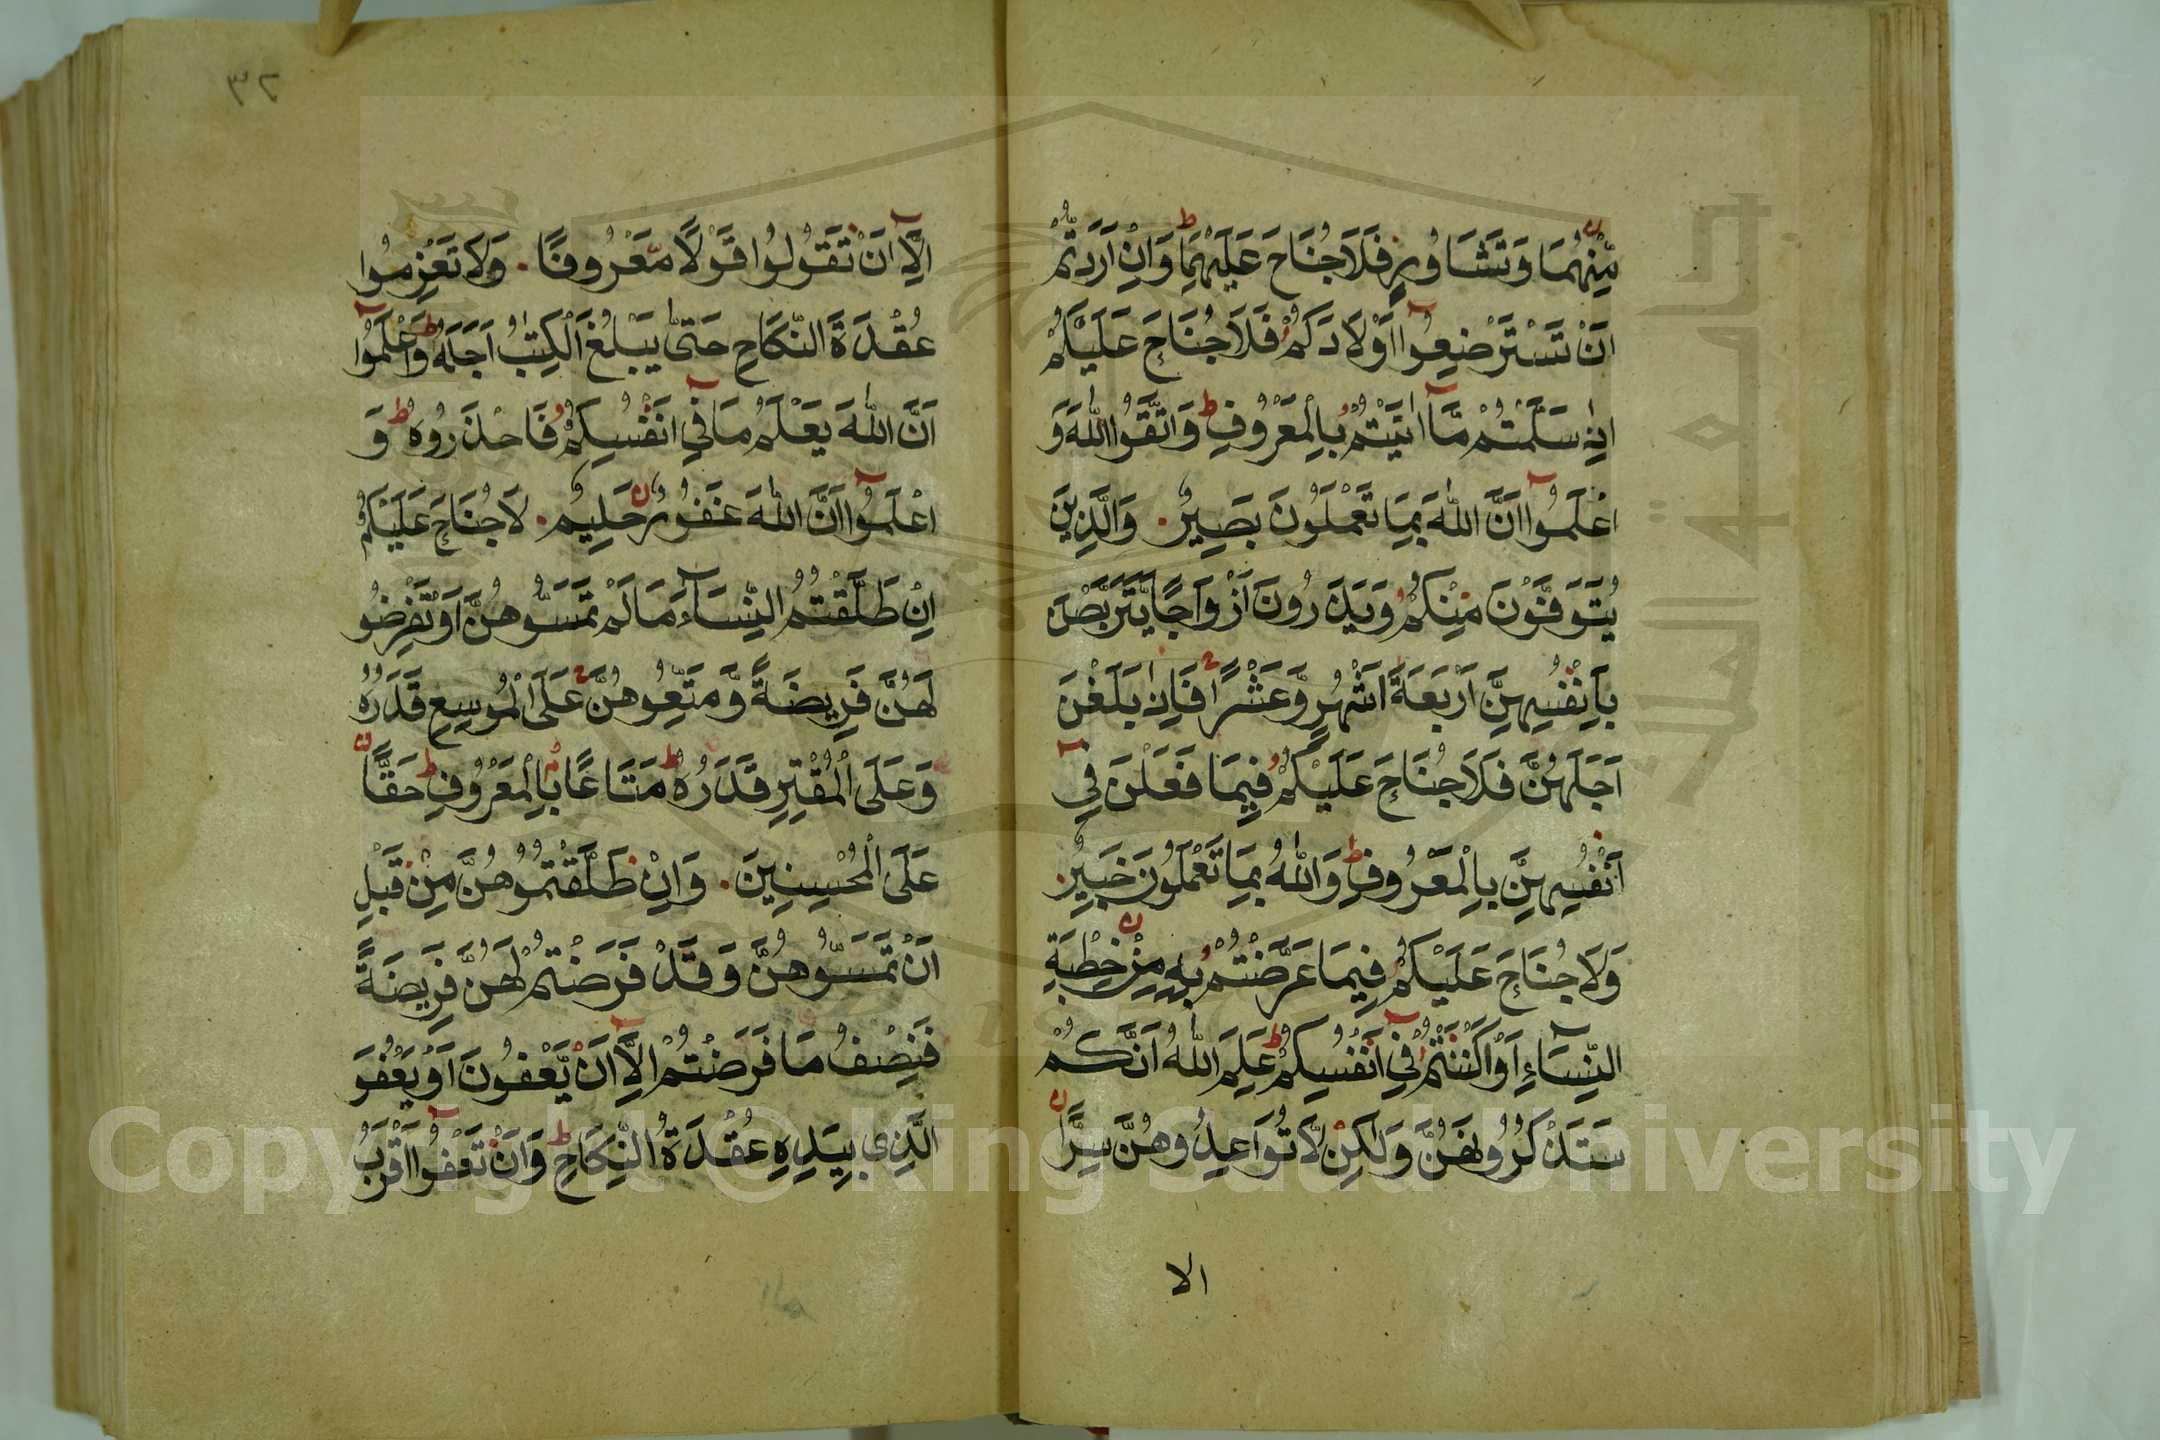 مِّنْهُمَا وَتَشَاوُرٍ فَلَا جُنَاحَ عَلَيْهِمَا وَاِنْ اَرَدتُّمْ
اَنْ تَسْتَرْضِعُوا اَوْلَادَكُمْ فَلَا جُنَاحَ عَلَيْكُمْ
اِذَا سَلَّمْتُمْ مَّا اٰتَيْتُمْ بِالْمَعْرُوفِ وَاتَّقُوا اللّٰهَ وَ
اعْلَمُوا اَنَّ اللّٰهَ بِمَا تَعْمَلُونَ بَصِيرٌ وَالَّذِينَ
يُتَوَفَّوْنَ مِنْكُمْ وَيَذَرُونَ اَزْوَاجًا يَّتَرَبَّصْنَ
بِاَنْفُسِهِنَّ اَرْبَعَةَ اَشْهُرٍ وَّعَشْرًا فَاِذَا بَلَغْنَ
اَجَلَهُنَّ فَلَا جُنَاحَ عَلَيْكُمْ فِيمَا فَعَلْنَ فِي
اَنْفُسِهِنَّ بِالْمَعْرُوفِ وَاللّٰهُ بِمَا تَعْمَلُونَ خَبِيرٌ
وَلَا جُنَاحَ عَلَيْكُمْ فِيمَا عَرَّضْتُمْ بِهِ مِنْ خِطْبَةِ
النِّسَاءِ اَوْ اَكْنَنْتُمْ فِي اَنْفُسِكُمْ عَلِمَ اللّٰهُ اَنَّكُمْ
سَتَذْكُرُونَهُنَّ وَلٰكِنْ لَّا تُوَاعِدُوهُنَّ سِرًّا
الا
٣٢
اِلَّا اَنْ تَقُولُوا قَوْلًا مَّعْرُوفًا وَلَا تَعْزِمُوا
عُقْدَةَ النِّكَاحِ حَتّٰى يَبْلُغَ الْكِتٰبُ اَجَلَهُ وَاعْلَمُوا
اَنَّ اللّٰهَ يَعْلَمُ مَا فِي اَنْفُسِكُمْ فَاحْذَرُوهُ وَ
اعْلَمُوا اَنَّ اللّٰهَ غَفُورٌ حَلِيمٌ لَا جُنَاحَ عَلَيْكُمْ
اِنْ طَلَّقْتُمُ النِّسَاءَ مَا لَمْ تَمَسُّوهُنَّ اَوْ تَفْرِضُوا
لَهُنَّ فَرِيضَةً وَّمَتِّعُوهُنَّ عَلَى الْمُوسِعِ قَدَرُهُ
وَعَلَى الْمُقْتِرِ قَدَرُهُ مَتَاعًا بِالْمَعْرُوفِ حَقًّا
عَلَى الْمُحْسِنِينَ وَاِنْ طَلَّقْتُمُوهُنَّ مِنْ قَبْلِ
اَنْ تَمَسُّوهُنَّ وَقَدْ فَرَضْتُمْ لَهُنَّ فَرِيضَةً
فَنِصْفُ مَا فَرَضْتُمْ اِلَّا اَنْ يَّعْفُونَ اَوْ يَعْفُوَ
الَّذِي بِيَدِهِ عُقْدَةُ النِّكَاحِ وَاَنْ تَعْفُوا اَقْرَبُ
Copyright © King Saud University